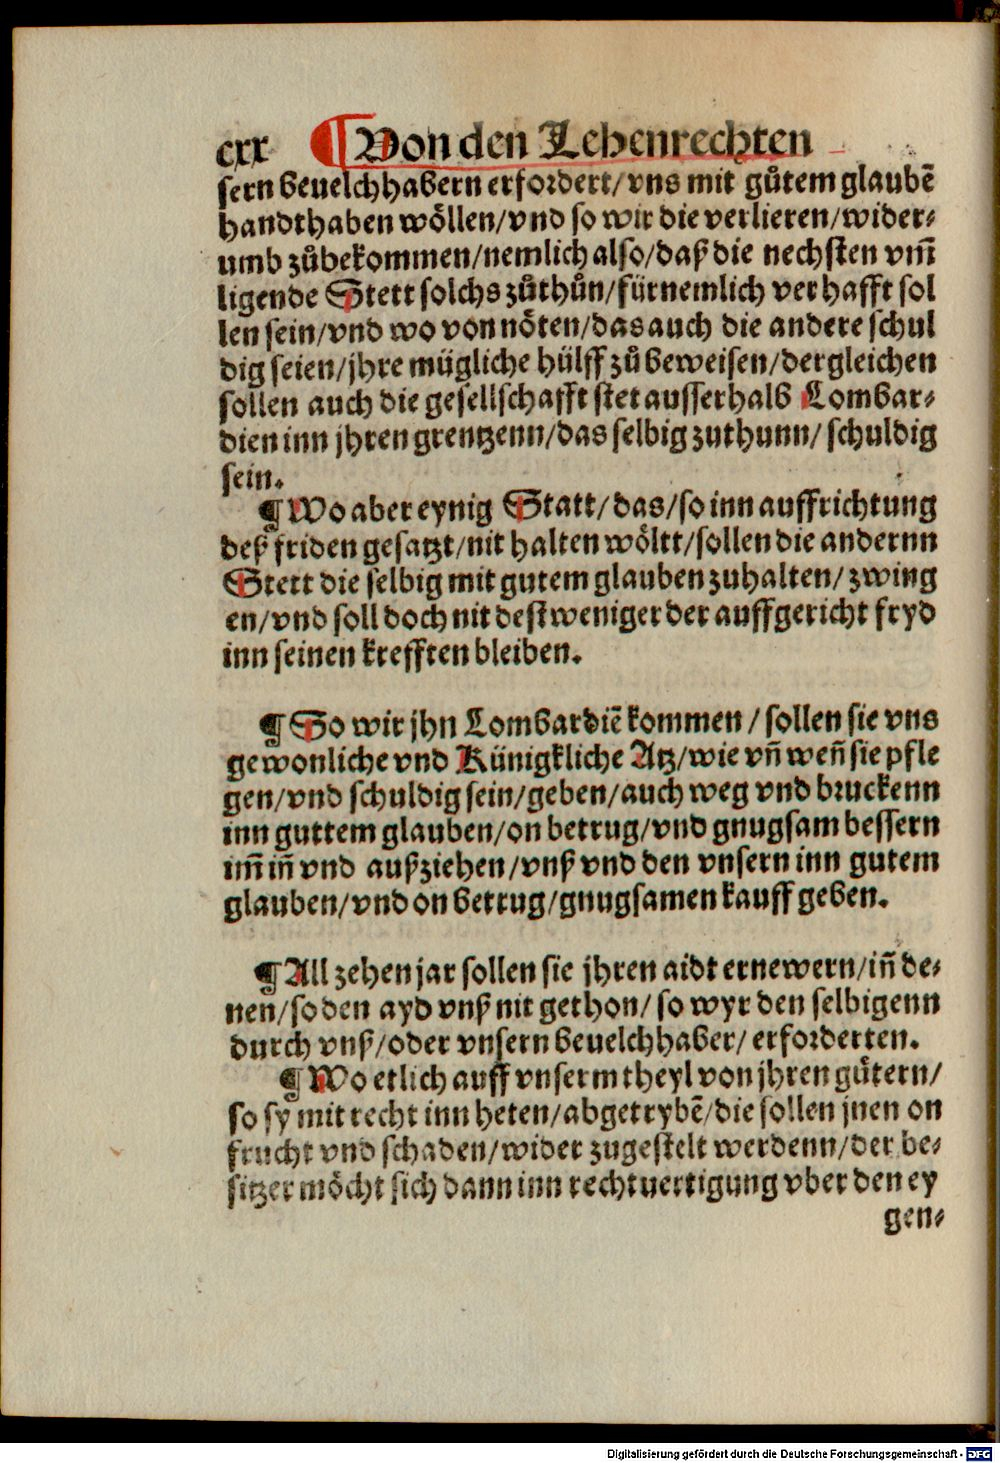 cxx ¶ Von den Lehenrechten
sern beuelchhabern erfordert/ vns mit gůtem glaubẽ
handthaben wöllen/vnd so wir die verlieren/wider⸗
umb zůbekommen/nemlich also/daß die nechsten vm̃
ligende Stett solchs zůthůn/fürnemlich verhafft sol
len sein/vnd wo von nöten/das auch die andere schul
dig seien/jhre mügliche hülff zů beweisen/dergleichen
sollen auch die gesellschafft stet ausserhalb Lombar⸗
dien inn jhren grentzenn/das selbig zuthunn/ schuldig
sein.
¶ Wo aber eynig Statt/ das/so inn auffrichtung
deß friden gesatzt/nit halten wöltt/sollen die andernn
Stett die selbig mit gutem glauben zuhalten/ zwing
en/vnd soll doch nit destweniger der auffgericht fryd
inn seinen krefften bleiben.
¶ So wir jhn Lombardiẽ kommen / sollen sie vns
gewonliche vnd Künigkliche Atz/wie vñ weñ sie pfle
gen/vnd schuldig sein/geben/auch weg vnd bruckenn
inn guttem glauben/on betrug/vnd gnugsam bessern
im̃ iñ vnd außziehen/vnß vnd den vnsern inn gutem
glauben/vnd on betrug/gnugsamen kauff geben.
¶ All zehen jar sollen sie jhren aidt ernewern/iñ de⸗
nen/so den ayd vnß nit gethon/ so wyr den selbigenn
durch vnß/oder vnsern beuelchhaber/ erforderten.
¶ Wo etlich auff vnserm theyl von jhren gůtern/
so sy mit recht inn heten/abgetrybẽ/die sollen jnen on
frucht vnd schaden/wider zugestelt werdenn/der be⸗
sitzer möcht sich dann inn rechtuertigung vber den ey
gen⸗
Digitalisierung gefördert durch die Deutsche Forschungsgemeinschaft - DFG